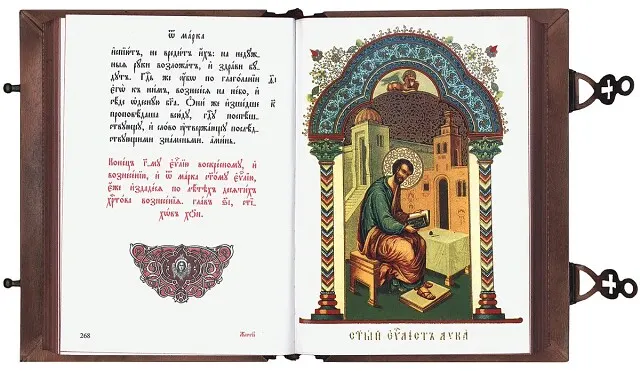 Ѿ ма́рка
испїю́тъ, не вреди́тъ и҆́хъ: на неду́ж-
ныѧ рꙋ́ки возложа́тъ, и҆ здра́ви бꙋ́-
дꙋтъ. Гдⷭ҇ь же ᲂу҆́бѡ по глаго́ланїи
є҆гѡ̀ къ ни̑мъ, вознесе́сѧ на не́бо, и҆
сѣ́де ѡ҆деснꙋ́ю бг҃а. Ѻ҆ни́ же и҆зше́дше к҃
проповѣ́даша всю́дꙋ, гдⷭ҇ꙋ поспѣ́ш-
ствꙋющꙋ, и҆ сло́во ᲂу҆твержда́ющꙋ послѣ́д-
ствꙋющими зна́меньми. а҆ми́нь.
Коне́цъ г҃-мꙋ є҆ѵⷢ҇лїю воскре́сномꙋ, и҆
вознесе́нїѧ, и҆ ѿ ма́рка ст҃о́мꙋ є҆ѵⷢ҇лїю,
є҆́же и҆здаде́сѧ по лѣ́тѣхъ десѧти́хъ
хрⷭ҇то́ва вознесе́нїѧ. гла́въ сти-
хѡ́въ
268
СТЫ́Й ЕѴⷢЛІСТЪ ЛУКА̀